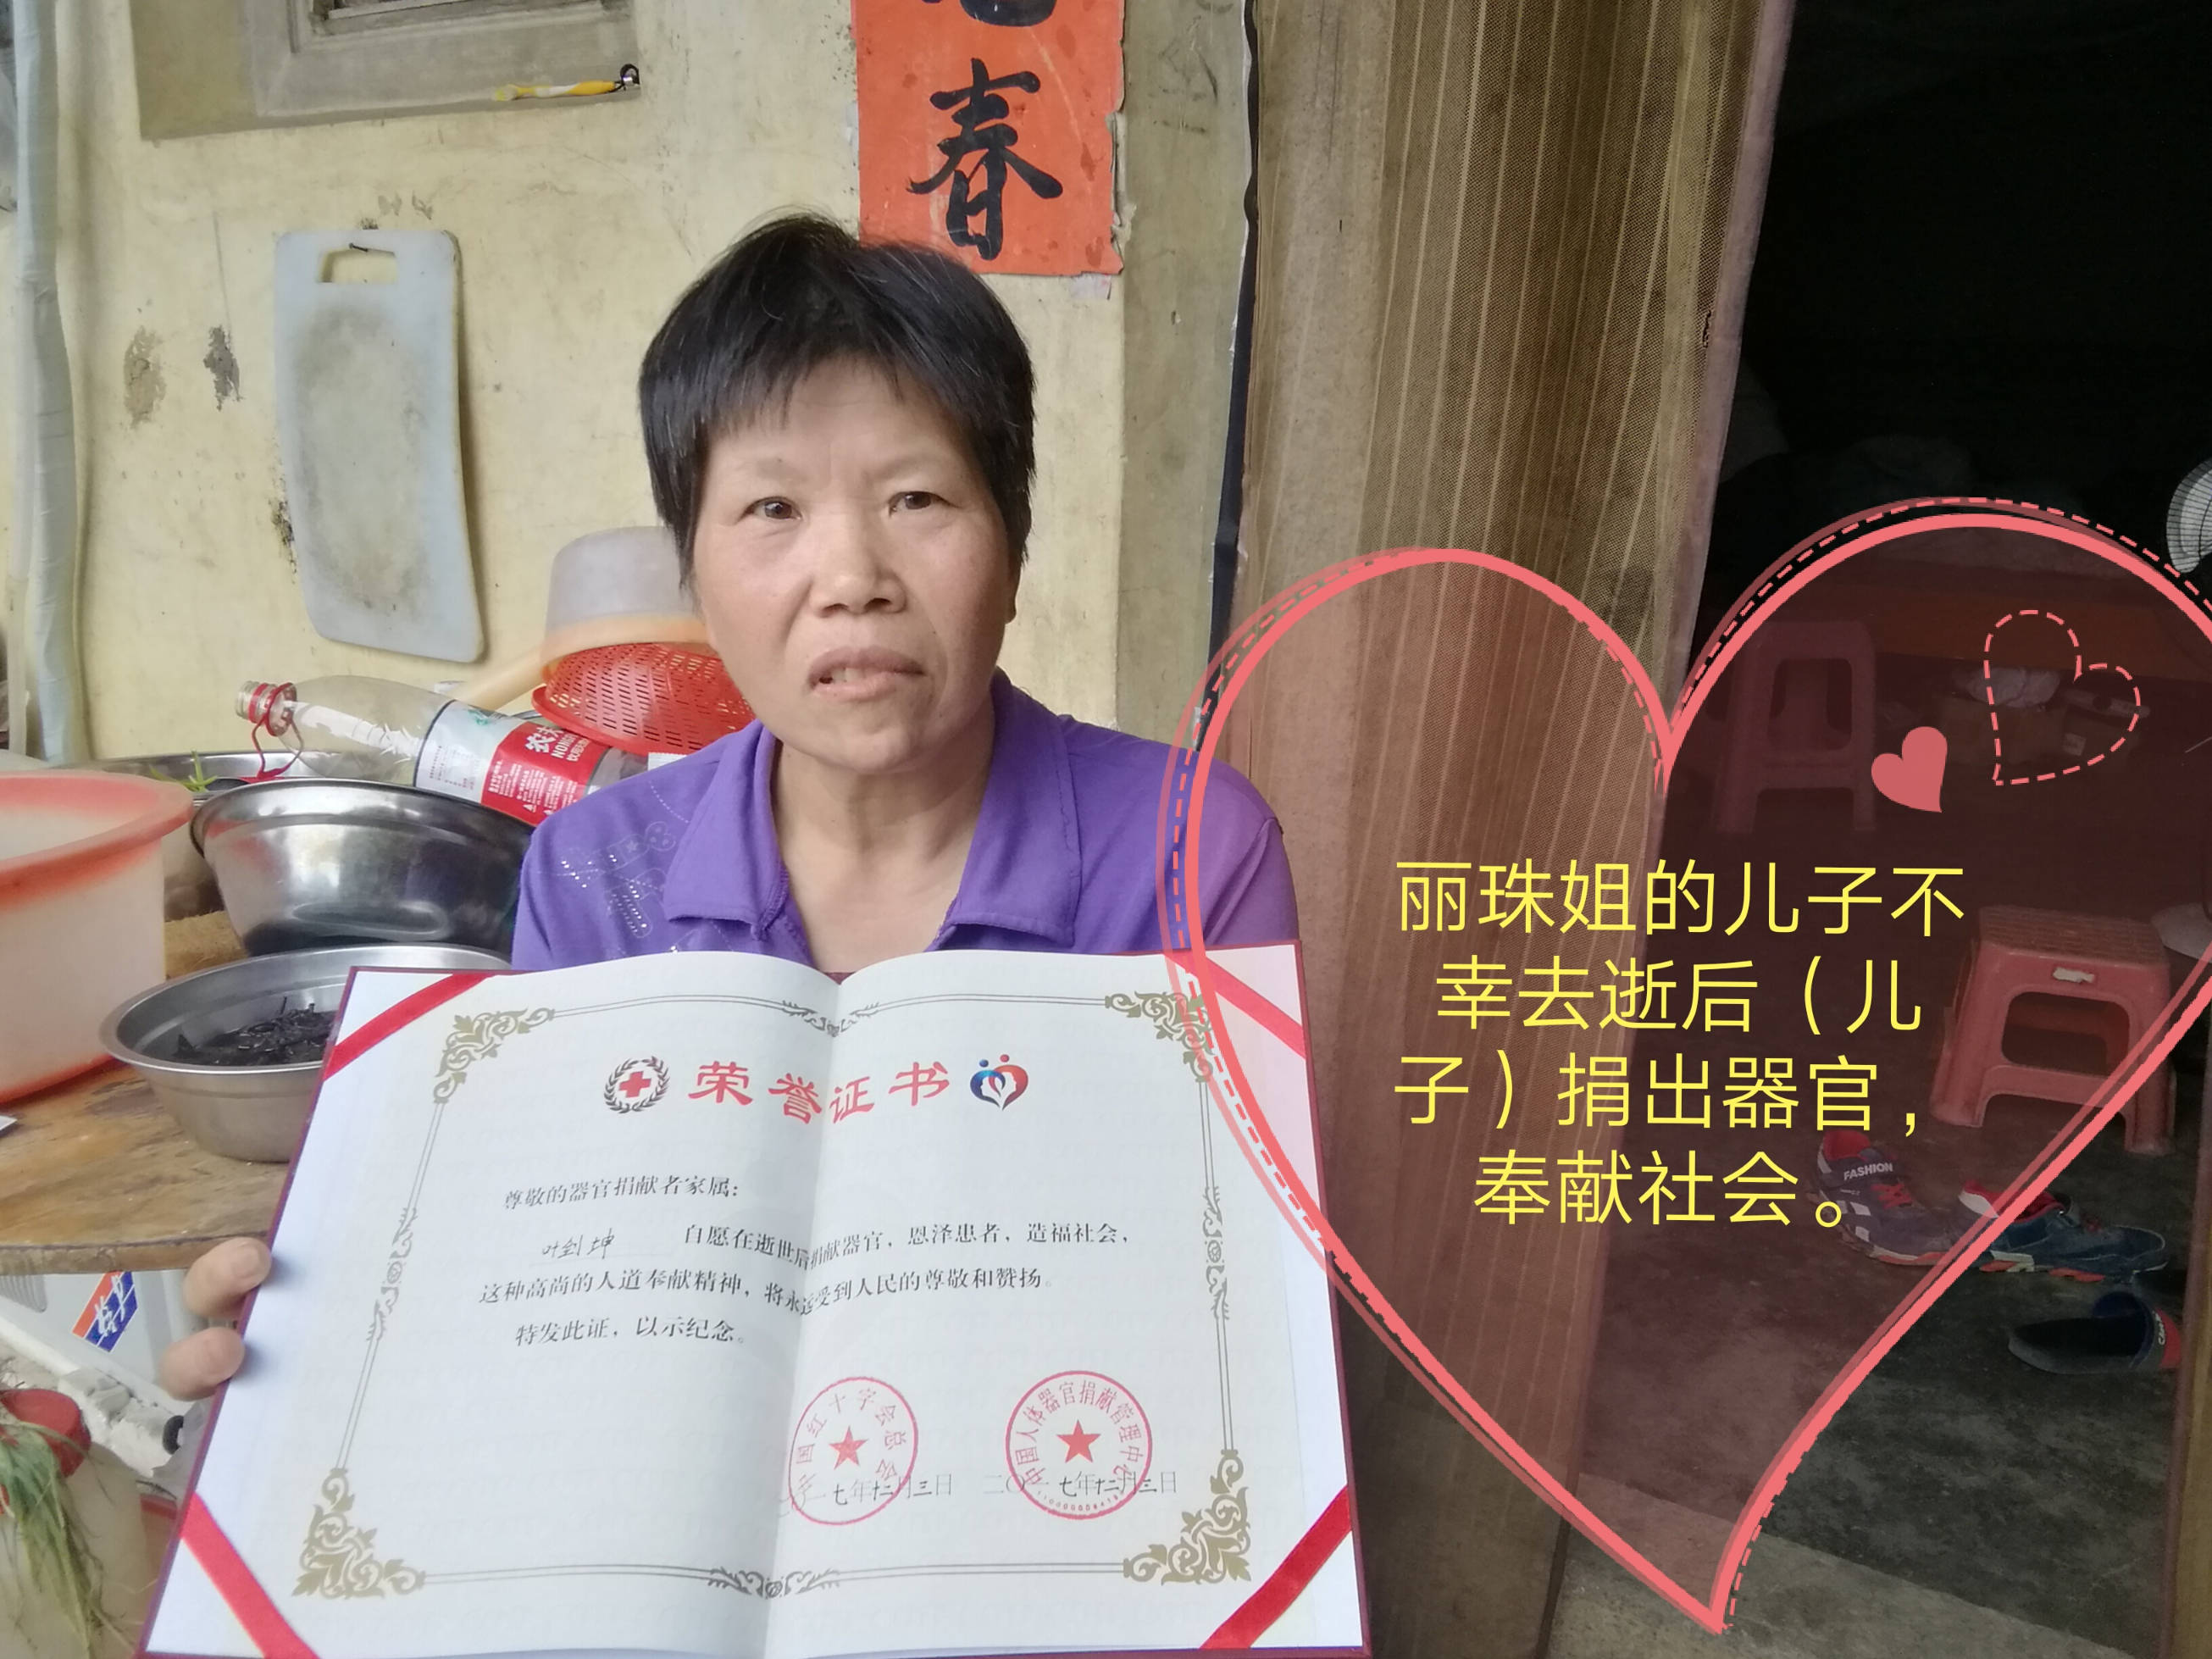 春
农夫
NONGF
丽珠姐的儿子不
幸去逝后（儿
子）捐出器官，
奉献社会。
荣誉证书
尊敬的器官捐献者家属：
叶剑坤 自愿在逝世后捐献器官，恩泽患者，造福社会，
这种高尚的人道奉献精神，将永远受到人民的尊敬和赞扬。
特发此证，以示纪念。
中国红十字会总会
中国人体器官捐献管理中心
七年十二月三日
二〇一七年十二月三日
FASHION